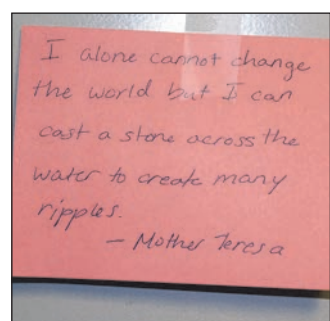 I alone cannot change
the world but I can
cast a stone across the
water to create many
ripples.
- Mother Teresa